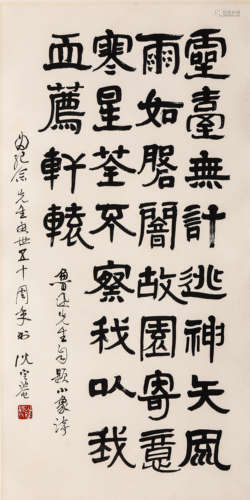 靈臺無計逃神矢風
雨如磐闇故園寄意
寒星荃不察我以我
血薦軒轅
魯迅先生自題小象詩
為紀念先生逝世五十周年書 沈定菴